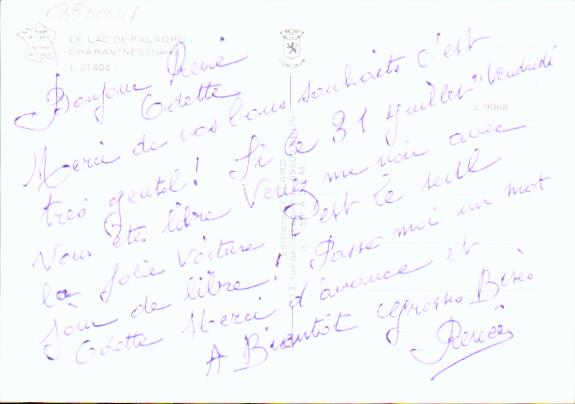 LE LAC DE PALADRU
CHARAVINES (Isère)
I. 21404
J. 9068
Bonjour René
Odette
Merci de vos bons souhaits c'est
très gentil! Si le 31 Juillet "Vendredi
Vous êtes libre Venez me voir avec
la Jolie voiture c'est le seul
jour de libre! Passe moi un mot
Odette Merci d'avance et
A Bientôt Grosses Bises
Renée